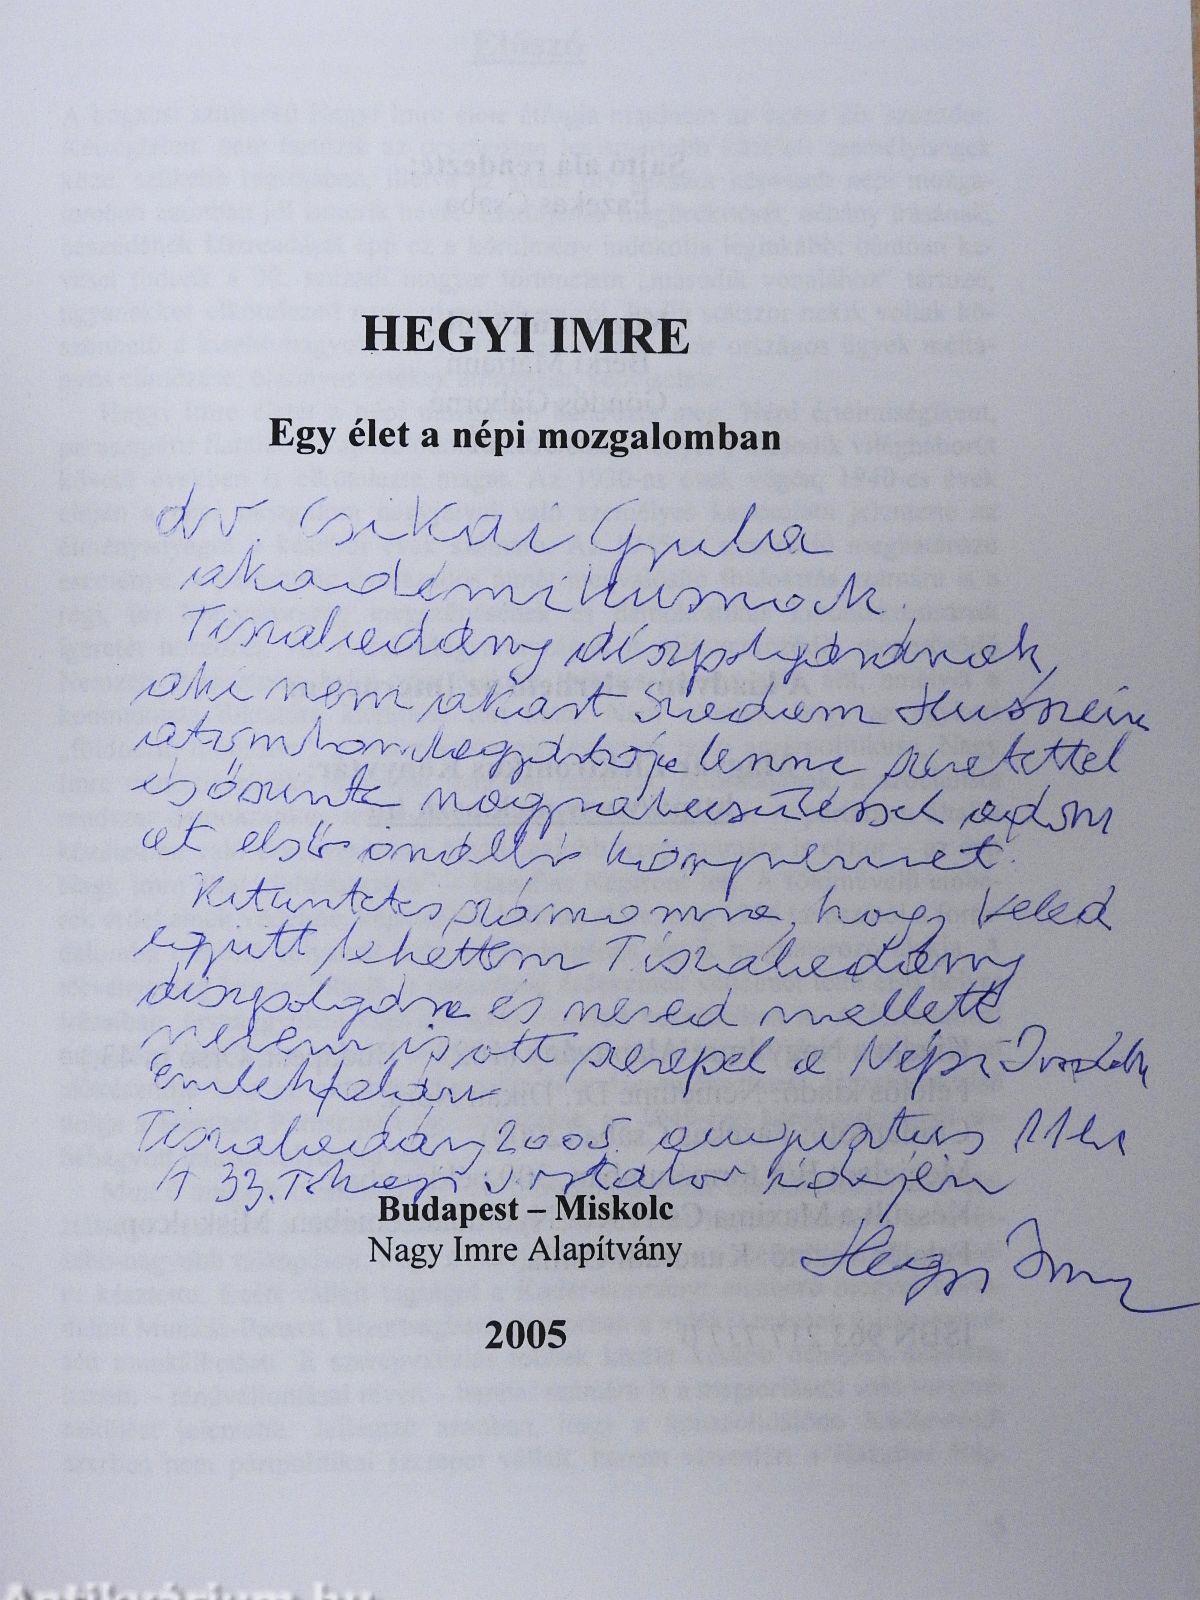 HEGYI IMRE
Egy élet a népi mozgalomban
dr. Csikai Gyula
akadémikusnak
Tiszaladány díszpolgárának,
aki nem akart Szadam Husszein
atombombagyártója lenni szeretettel
és őszinte nagyrabecsüléssel adom
át első önálló könyvemet.
Kitüntetés számomra, hogy Veled
együtt lehettem Tiszaladány
díszpolgára és neved mellett
nevem is ott szerepel a Népi Írók
Emlékfalán
Tiszaladány 2005. augusztus 11-én
A 33. Tokaji Írótábor idején
Budapest – Miskolc
Nagy Imre Alapítvány
Hegyi Imre
2005
Antikvárium.hu